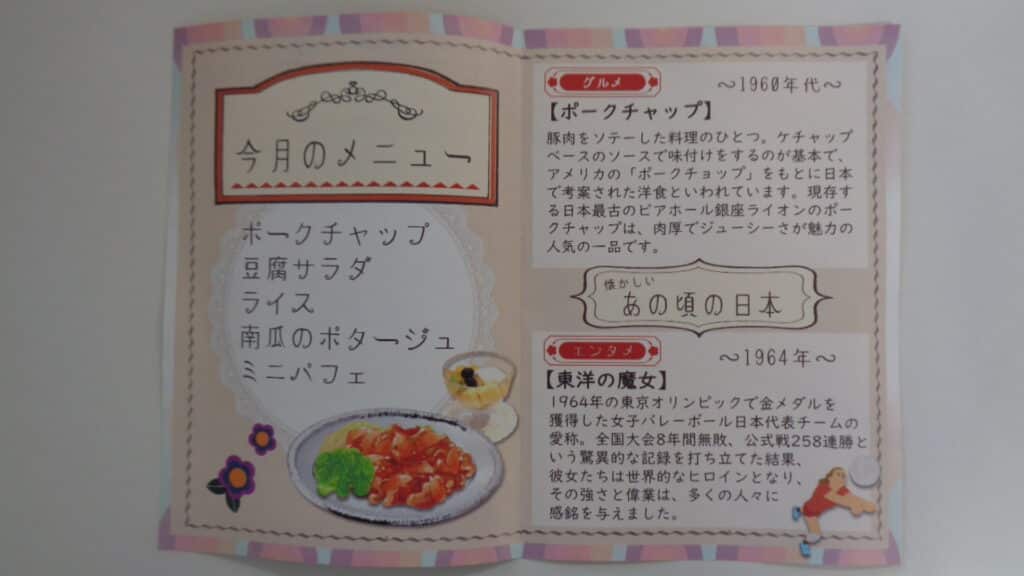 今月のメニュー
ポークチャップ
豆腐サラダ
ライス
南瓜のポタージュ
ミニパフェ
グルメ
～1960年代～
【ポークチャップ】
豚肉をソテーした料理のひとつ。ケチャップ
ベースのソースで味付けをするのが基本で、
アメリカの「ポークチョップ」をもとに日本
で考案された洋食といわれています。現存す
る日本最古のビアホール銀座ライオンのポー
クチャップは、肉厚でジューシーさが魅力の
人気の一品です。
懐かしい
あの頃の日本
エンタメ
～1964年～
【東洋の魔女】
1964年の東京オリンピックで金メダルを
獲得した女子バレーボール日本代表チームの
愛称。全国大会8年間無敗、公式戦258連勝と
いう驚異的な記録を打ち立てた結果、
彼女たちは世界的なヒロインとなり、
その強さと偉業は、多くの人々に
感銘を与えました。